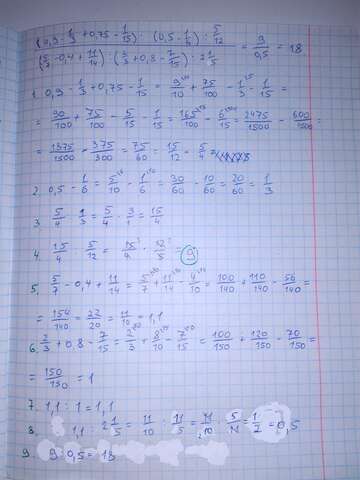 (0,9 - 1/3 + 0,75 - 1/15) : (0,5 - 1/6) : 5/12
(5/7 - 0,4 + 11/14) : (2/3 + 0,8 - 7/15) : 2 1/5 = 9/0,5 = 18
1. 0,9 - 1/3 + 0,75 - 1/15 = 9/10 + 75/100 - 1/3 - 1/15 =
= 90/100 + 75/100 - 5/15 - 1/15 = 165/100 - 6/15 = 2475/1500 - 600/1500 =
= 1875/1500 = 375/300 = 75/60 = 15/12 = 5/4 =
2. 0,5 - 1/6 = 5/10 - 1/6 = 30/60 - 10/60 = 20/60 = 1/3
3. 5/4 : 1/3 = 5/4 · 3/1 = 15/4
4. 15/4 : 5/12 = 15/4 · 12/5 = 9
5. 5/7 - 0,4 + 11/14 = 5/7 + 11/14 - 4/10 = 100/140 + 110/140 - 56/140 =
= 154/140 = 22/20 = 11/10 = 1,1
6. 2/3 + 0,8 - 7/15 = 2/3 + 8/10 - 7/15 = 100/150 + 120/150 - 70/150 =
= 150/150 = 1
7. 1,1 : 1 = 1,1
8. 1,1 : 2 1/5 = 11/10 : 11/5 = 11/10 · 5/11 = 1/2 = 0,5
9. 9 : 0,5 = 18